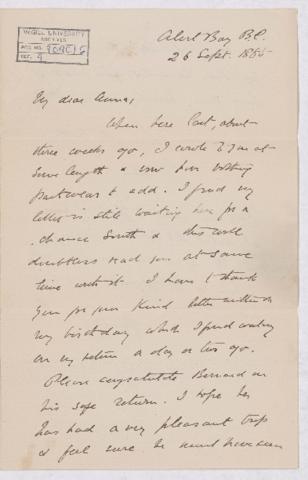 McGILL UNIVERSITY
ARCHIVES
ACC. NO.
REF. 9
Alert Bay B.C.
26 Sept. 1885
My dear Anna,
When here last, about
three weeks ago, I wrote you at
some length & now have nothing
particular to add. I find my
letter is still waiting here for a
chance South & this will
doubtless reach you at same
time with it. I have to thank
you for your kind letter written on
my birthday which I found waiting
on my return a day or two ago.
Please congratulate Bernard on
his safe return. I hope he
has had a very pleasant trip
& feel sure he must have been